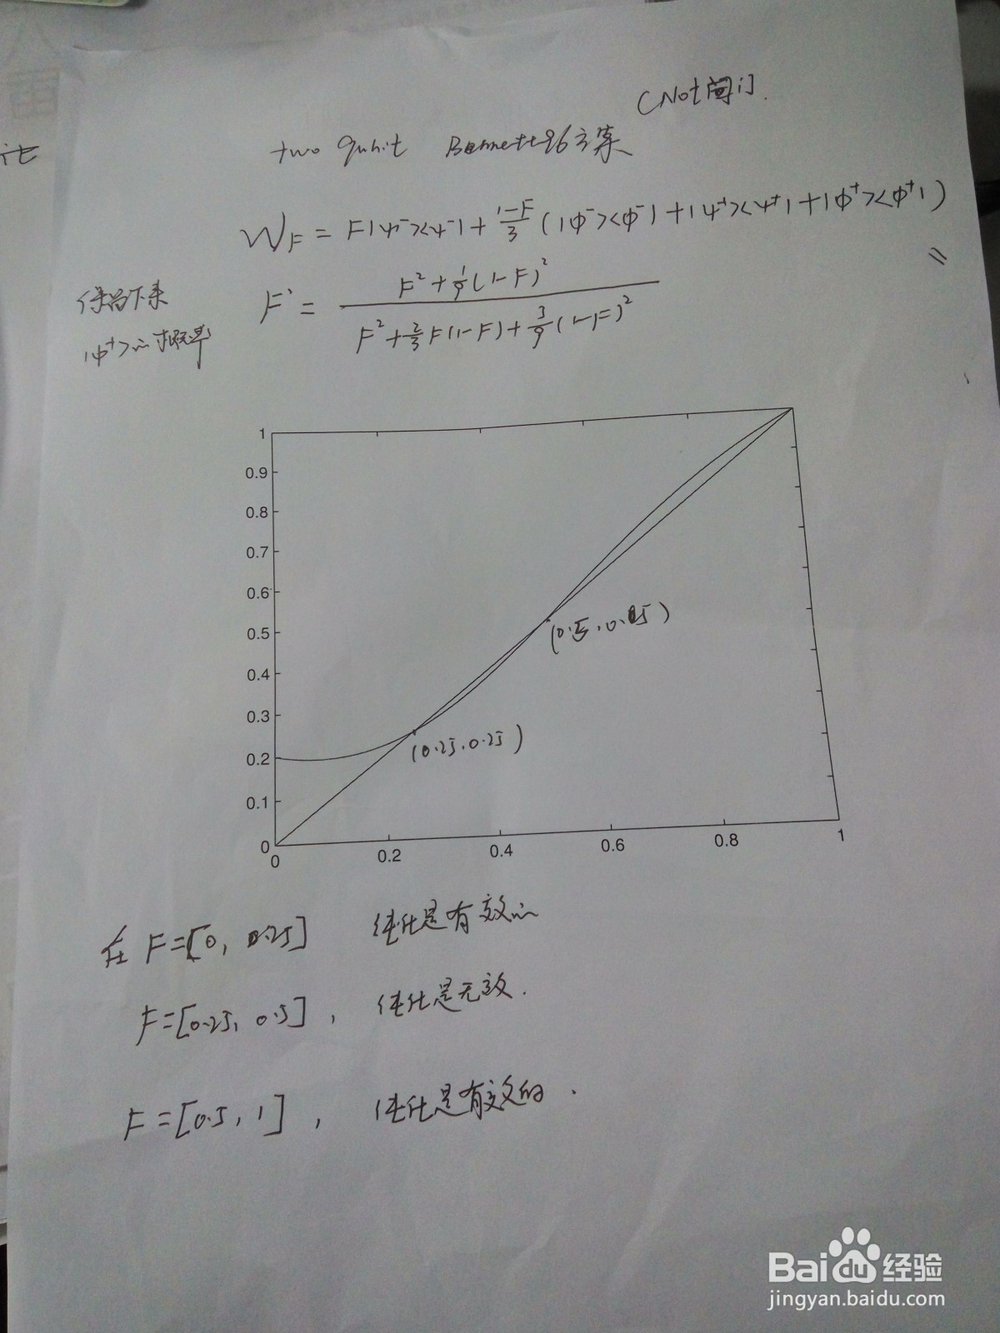 CNot闸门.
two qubit Bennett96方案
W_F = F|ψ⁻><ψ⁻| + (1-F)/3 (|φ⁻><φ⁻| + |ψ⁺><ψ⁺| + |φ⁺><φ⁺|)
保留下来
|φ⁺>的概率
F' = (F² + 1/9 (1-F)²) / (F² + 2/3 F(1-F) + 5/9 (1-F)²)
1
0.9
0.8
0.7
0.6
0.5
0.4
0.3
0.2
0.1
0
(0.5, 0.5)
(0.25, 0.25)
0 0.2 0.4 0.6 0.8 1
在 F=[0, 0.25] 纯化是有效的
F=[0.25, 0.5], 纯化是无效.
F=[0.5, 1], 纯化是有效的.
Baidu 经验
jingyan.baidu.com